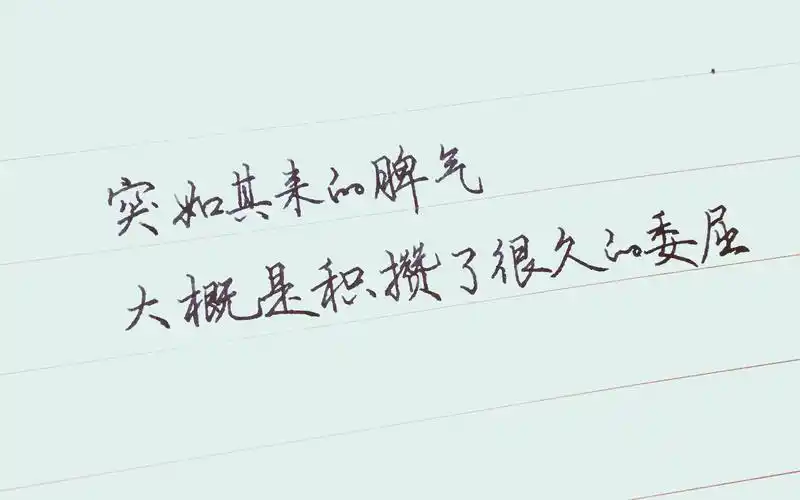 突如其来的脾气
大概是积攒了很久的委屈